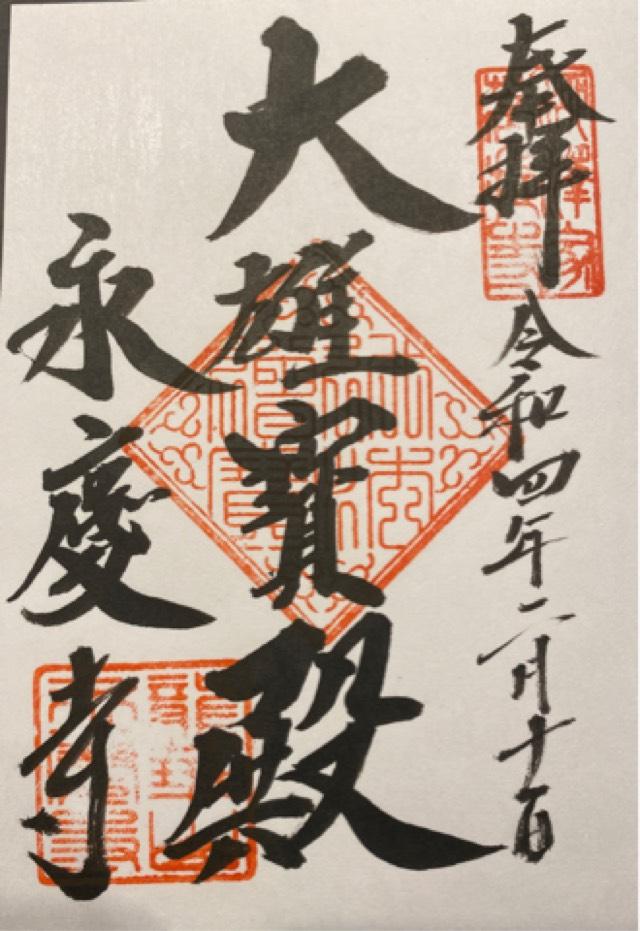 奉拝 令和四年二月十一日
大雄寳殿
永慶寺